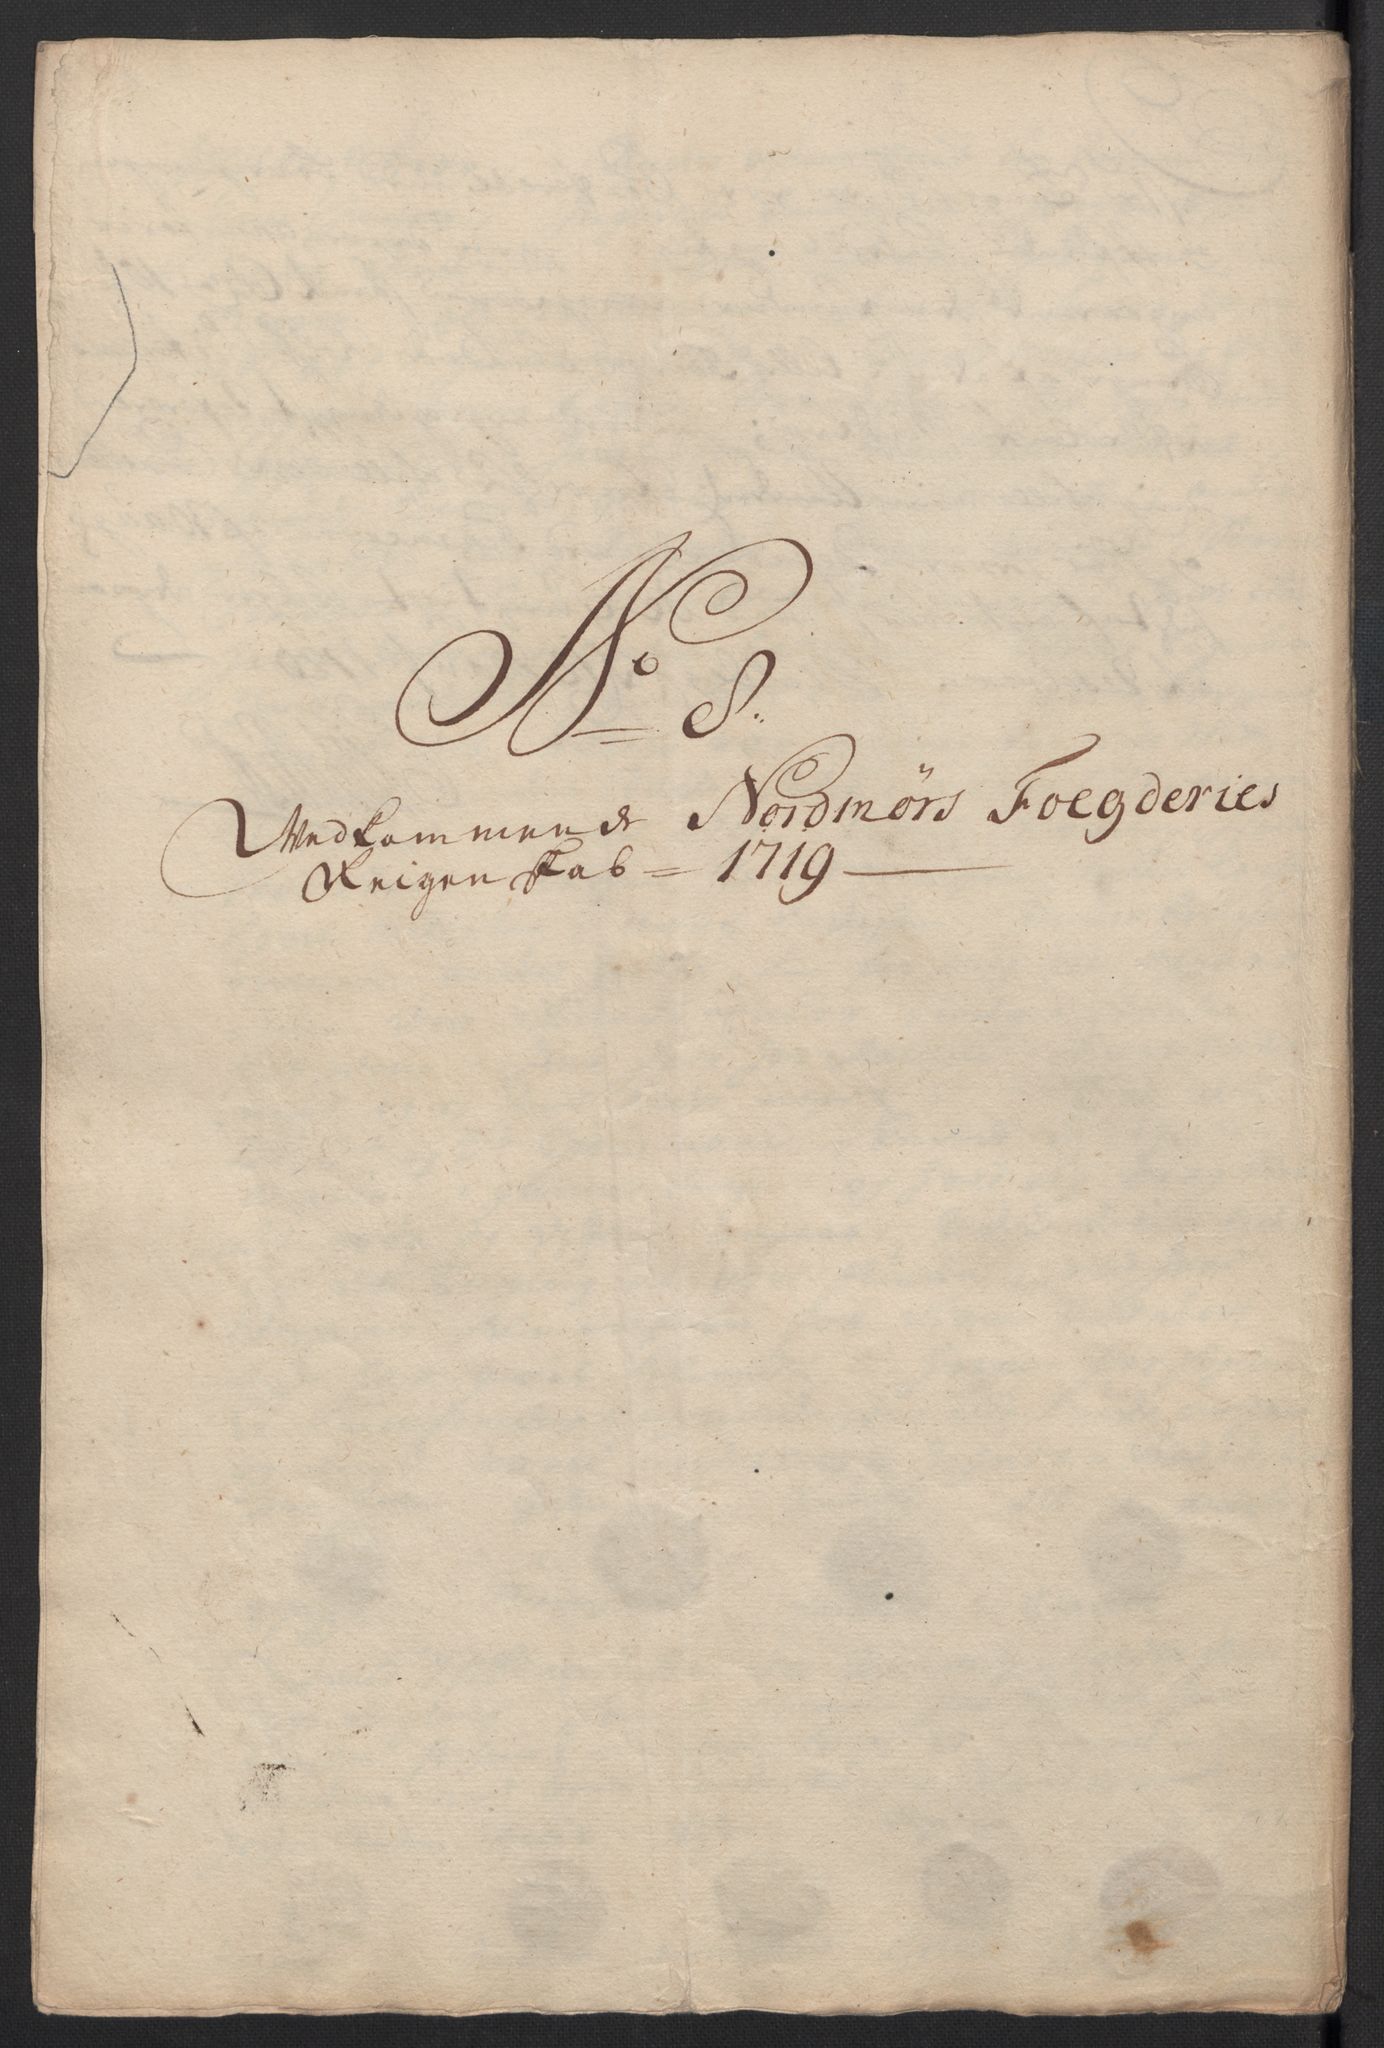 No 8.
Vedkommende Nordmørs Foegderies
Reigenskab = 1719